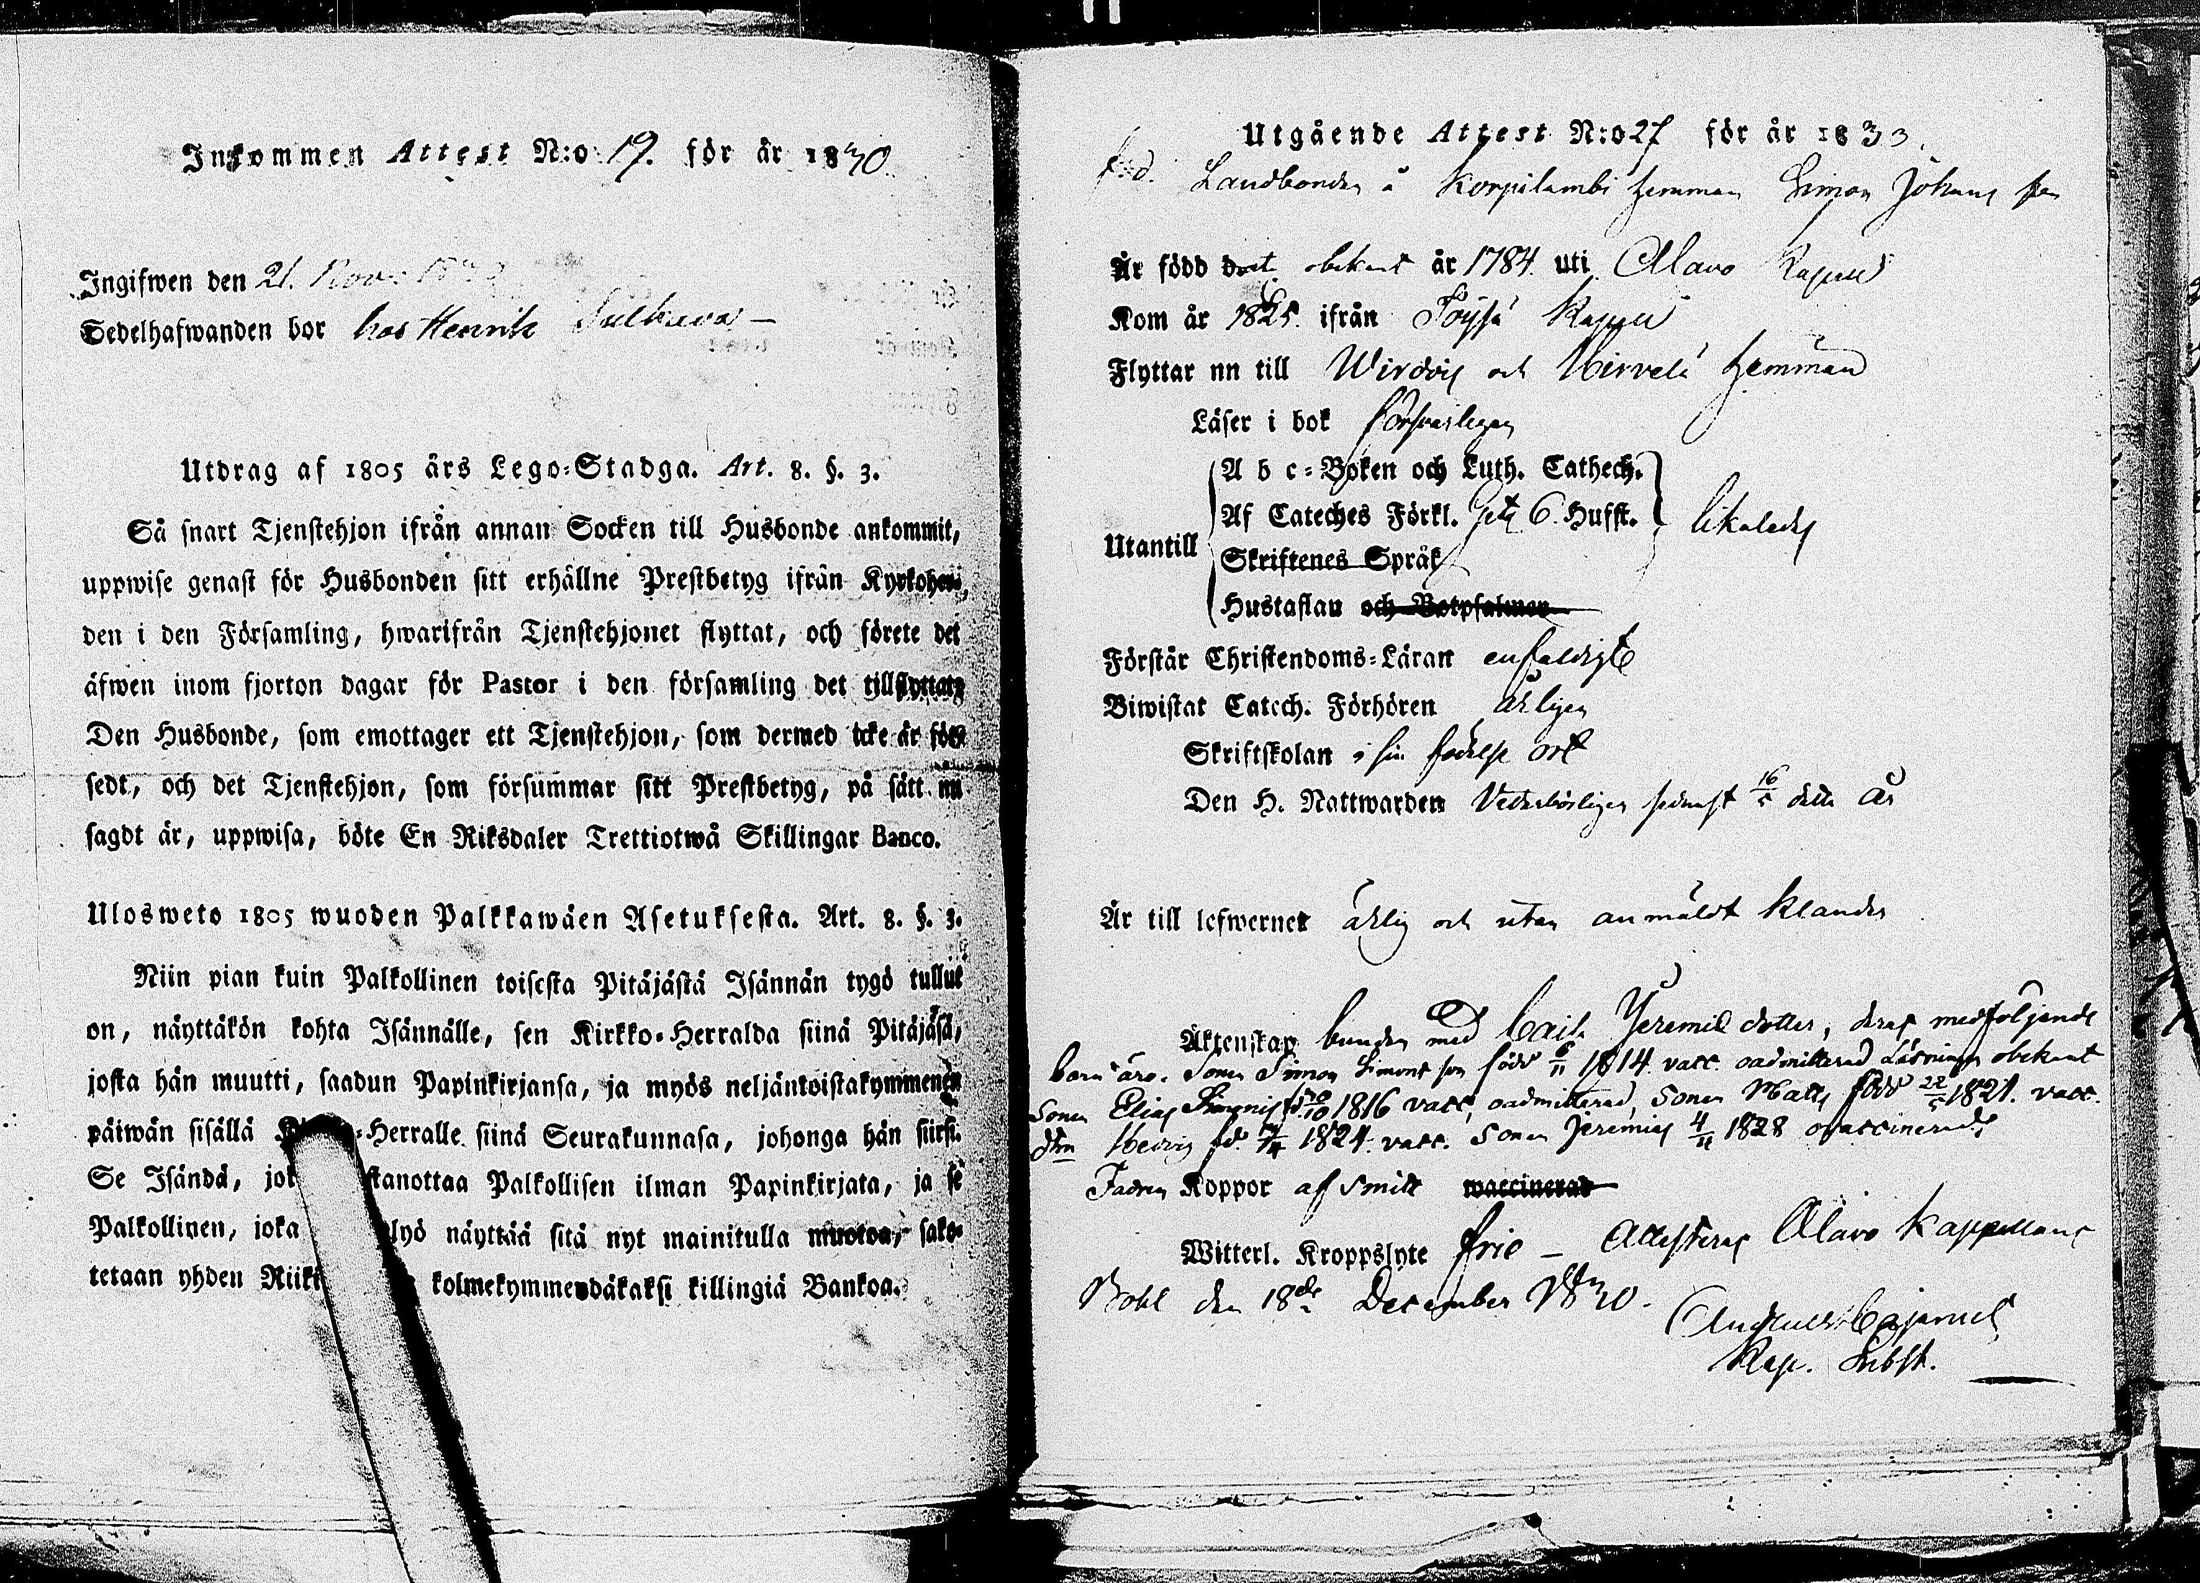 Inkommen Attest N:o 19. för år 1830.
Ingifwen den 21. Nov.
Sedelhafwanden bor hos Henrik Sulkava
Utdrag af 1805 års Lego-Stadga. Art. 8. §. 3.
Så snart Tjenstehjon ifrån annan Socken till Husbonde ankommit,
uppwise genast för Husbonden sitt erhållne Prestbetyg ifrån Kyrkoher-
den i den Församling, hwarifrån Tjenstehjonet flyttat, och förete det
äfwen inom fjorton dagar för Pastor i den församling det tillflyttat;
Den Husbonde, som emottager ett Tjenstehjon, som dermed icke är för-
sedt, och det Tjenstehjon, som försummar sitt Prestbetyg, på sätt nu
sagdt är, uppwisa, böte En Riksdaler Trettiotwå Skillingar Banco.
Ulosweto 1805 wuoden Palkkawäen Asetuksesta. Art. 8. §. 3.
Niin pian kuin Palkollinen toisesta Pitäjästä Isännän tygö tullut
on, näyttäkön kohta Isännälle, sen Kirkko-Herralda siinä Pitäjäsä,
josta hän muutti, saadun Papinkirjansa, ja myös neljäntoistakymmenen
päiwän sisällä -Herralle siinä Seurakunnasa, johonga hän siirsi.
Se Isändä, jo stanottaa Palkollisen ilman Papinkirjata, ja se
Palkollinen, joka lyö näyttää sitä nyt mainitulla muotoa, sako-
tetaan yhden Riiki kolmekymmendäkaksi killingiä Bankoa.
Utgående Attest N:o 27 för år 1830.
f.d. Landbonden å Korpilambi hemman Simon Johans son
Är född det obekant år 1784 uti Alavo Kapell
Kom år 1825. ifrån Töysä Kapell
Flyttar nu till Wirdois och Hirvelä hemman
Läser i bok försvarligen
A b c-Boken och Luth. Cathech.
Af Cateches Förkl. 6. Hufst. likaledes
Utantill
Skriftenes Språk
Hustaflan och Botpsalmer
Förstår Christendoms-Läran enfaldigt
Biwistat Catech. Förhören årligen
Skriftskolan i sin födelse ort
Den H. Nattwarden Vederbörligen sednast 16/5 detta år
Är till lefwernet ärlig och utan anmäldt klander
Äktenskap bunden med Caisa Jeremiædotter, deras medföljande
barn äro. Sonen Simon Simons son född 6/11 1814. vacc. oadmitterad Läsningen obekant
Sonen Elias Simonis fd. 1816 vacc. oadmitterad, Sonen Matts född 22/5 1821. vacc.
dtrn Hedvig fd. 1824. vacc. Sonen Jeremias 4/11 1828 ovaccinerad.
Fadren Koppor af Smitt waccinerad
Witterl. Kroppslyte frie — Attesteras Alavo Kappellans
Bohl den 18de December 1830.
Cajanus
Kap. Subst.